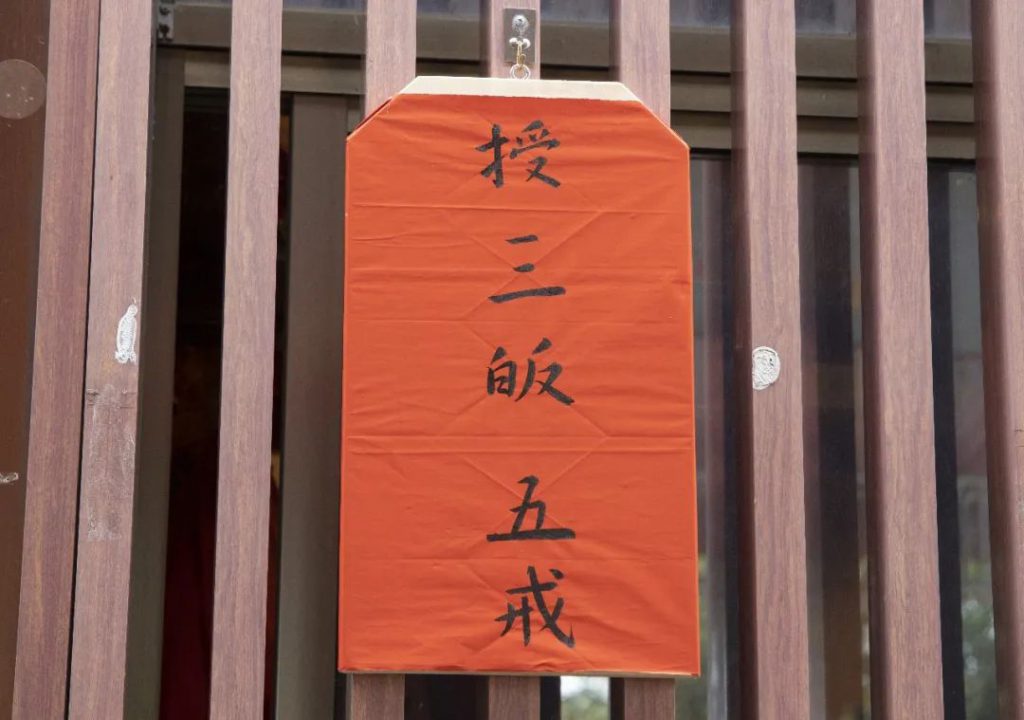 授三皈五戒